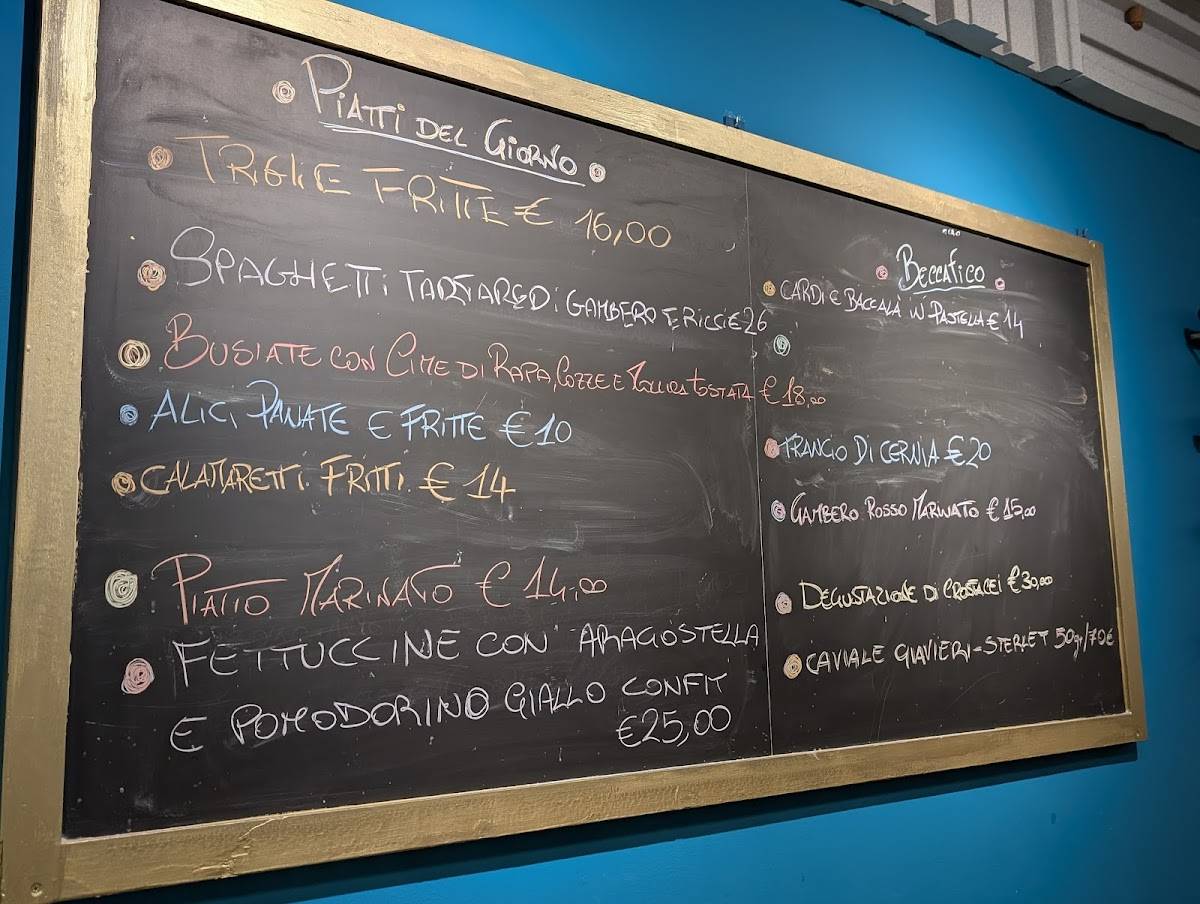 PIATTI DEL GIORNO
TRIGLIE FRITTE € 16,00
SPAGHETTI TARTARE DI GAMBERO E RICCI € 26
BUSIATE CON CIME DI RAPA, COZZE E MOLLICA TOSTATA € 18,00
ALICI PANATE E FRITTE € 10
CALAMARETTI FRITTI € 14
PIATTO MARINATO € 14,00
FETTUCCINE CON ARAGOSTELLA
E POMODORINO GIALLO CONFIT
€25,00
BECCAFICO
CARDI E BACCALÀ IN PASTELLA € 14
TRANCIO DI CERNIA € 20
GAMBERO ROSSO MARINATO € 15,00
DEGUSTAZIONE DI CROSTACEI € 30,00
CAVIALE GIAVIERI-STERLET 50gr/70€